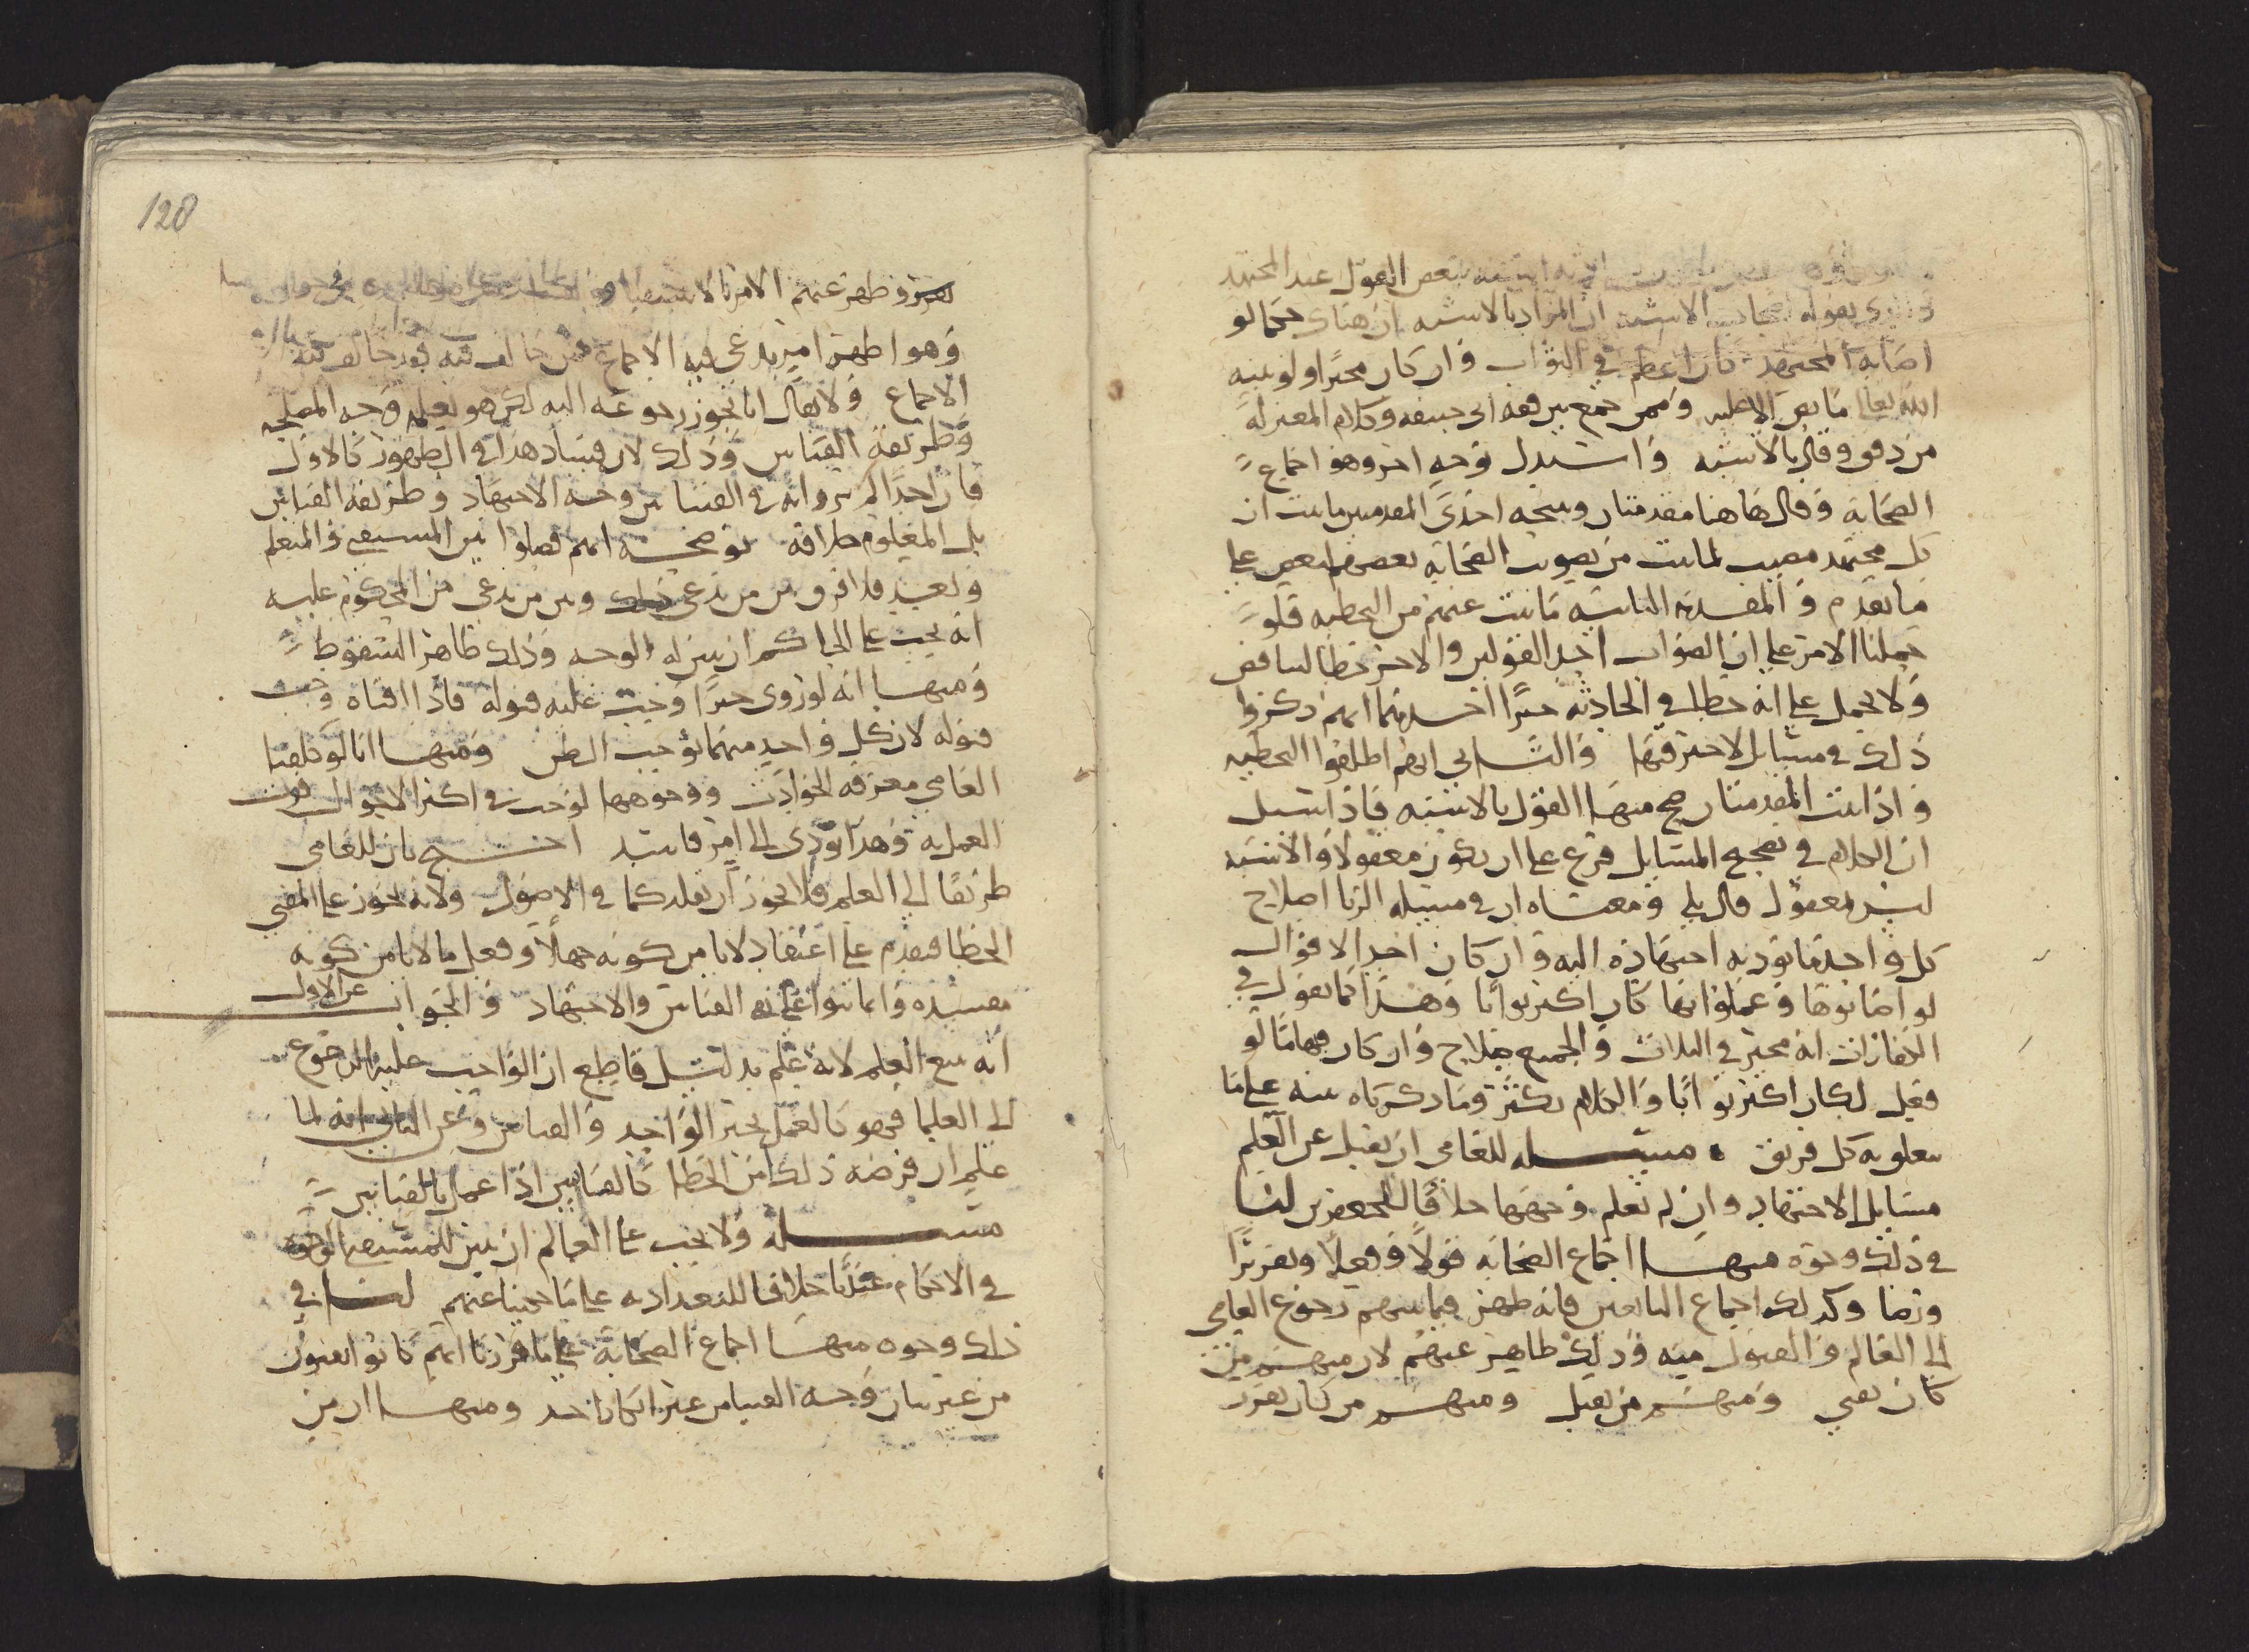 بعض القول عند المجتهد
يقوله اصحاب الاشبه ان المراد بالاشبه ان هناك حكما لو
اصابه المجتهد كان اعظم في الثواب وان كان مخيرا ولو نبيه
الله تعالى ما نص الا عليه وممن جمع بين فقه ابي حنيفة وكلام المعتزلة
من دقق وقال بالاشبه واستدل بوجه اخر وهو اجماع
الصحابة وقال هاهنا مقدمتان ونتيجه احدى المقدمتين ما ثبت ان
كل مجتهد مصيب لما ثبت من تصويب الصحابة بعضهم لبعض على
ما تقدم والمقدمة الثانية ما ثبت عنهم من التخطيه فلو
حملنا الامر على ان الصواب احد القولين والاخر خطا لتناقض
ولا يحمل على انه خطا في الحادثه خبرا احدهما انهم ذكروا
ذلك في مسايل لا خبر فيها والثاني انهم اطلقوا التخطيه
واذا ثبتت المقدمتان صح منها القول بالاشبه فاذا قيل
ان الكلام في تصحيح المسايل فرع على ان يكون معقولا والاشبه
ليس بمعقول قال بلى ومعناه ان في مسيله الربا اصلاح
كل واحد ما يوديه اجتهاده اليه وان كان احد الاقوال
لو اصابوها وعملوا بها كان اكثر ثوابا وهذا كما نقول في
الكفارات انه مخير في الثلاث والجميع صلاح وان كان فيها ما لو
فعل لكان اكثر ثوابا والكلام يكثر وما ذكرناه نبه على ما
يتعلق به كل فريق مسيله للعامي ان يقبل عن العالم
مسايل الاجتهاد وان لم يعلم وجهها خلافا للجعفرين لنا
في ذلك وجوه منها اجماع الصحابه قولا وفعلا وتقريرا
ورضا وكذلك اجماع التابعين فانه ظهر فيما بينهم رجوع العامي
الى العالم والقبول منه وذلك ظاهر عنهم لان منهم من
كان يفتي ومنهم من يقبل ومنهم من كان يقرر
128
وظهر عنهم الامر بالاستفتا
وهو اظهر امر يدعى فيه الاجماع فمن خالف فيه فقد خالف
الاجماع ولا يقال انا نجوز رجوعه اليه لكن هو يعلمه وجه المصلحه
وطريقة القياس وذلك لان فساد هذا في الظهور كالاول
فان احدا لم يرو انه في الفتيا بين وجه الاجتهاد وطريقه القياس
بل المعلوم خلافه توضحه انهم فصلوا بين المستفتي والمتعلم
وبعد فلا فرق بين من يدعي ذلك وبين من يدعي من المحكوم عليه
انه يجب على الحاكم ان يبين له الوجه وذلك ظاهر السقوط
ومنها انه لو روى خبرا وجب عليه قبوله فاذا افتاه وجب
قبوله لان كل واحد منهما يوجب الظن ومنها انا لو كلفنا
العامي معرفه الحوادث ووجوهها لوجب في اكثر الاحوال فوت
العمل به وهذا يودي الى امر فاسد احتج بان للعامي
طريقا الى العلم فلا يجوز ان يقلد كما في الاصول ولانه يجوز على المفتي
الخطا فيقدم على اعتقاد لا يامن كونه جهلا وفعل ما لا يامن كونه
مفسده وانما بنوا على نفي القياس والاجتهاد والجواب عن الاول
انه يتبع العلم لانه علم بدليل قاطع ان الواجب عليه الرجوع
الى العلما فهو كالعمل بخبر الواحد والقياس وعن الثاني انه لما
علم ان فرضه ذلك امن الخطا كالقايس اذا عمل بالقياس
مسيله ولا يجب على العالم ان يبين للمستفتي الوجه
في الاحكام عندنا خلافا للبغداديه على ما حكينا عنهم لنا في
ذلك وجوه منها اجماع الصحابة على ما قررنا انهم كانوا يفتون
من غير بيان وجه الفتيا من غير انكار احد ومنها ان من